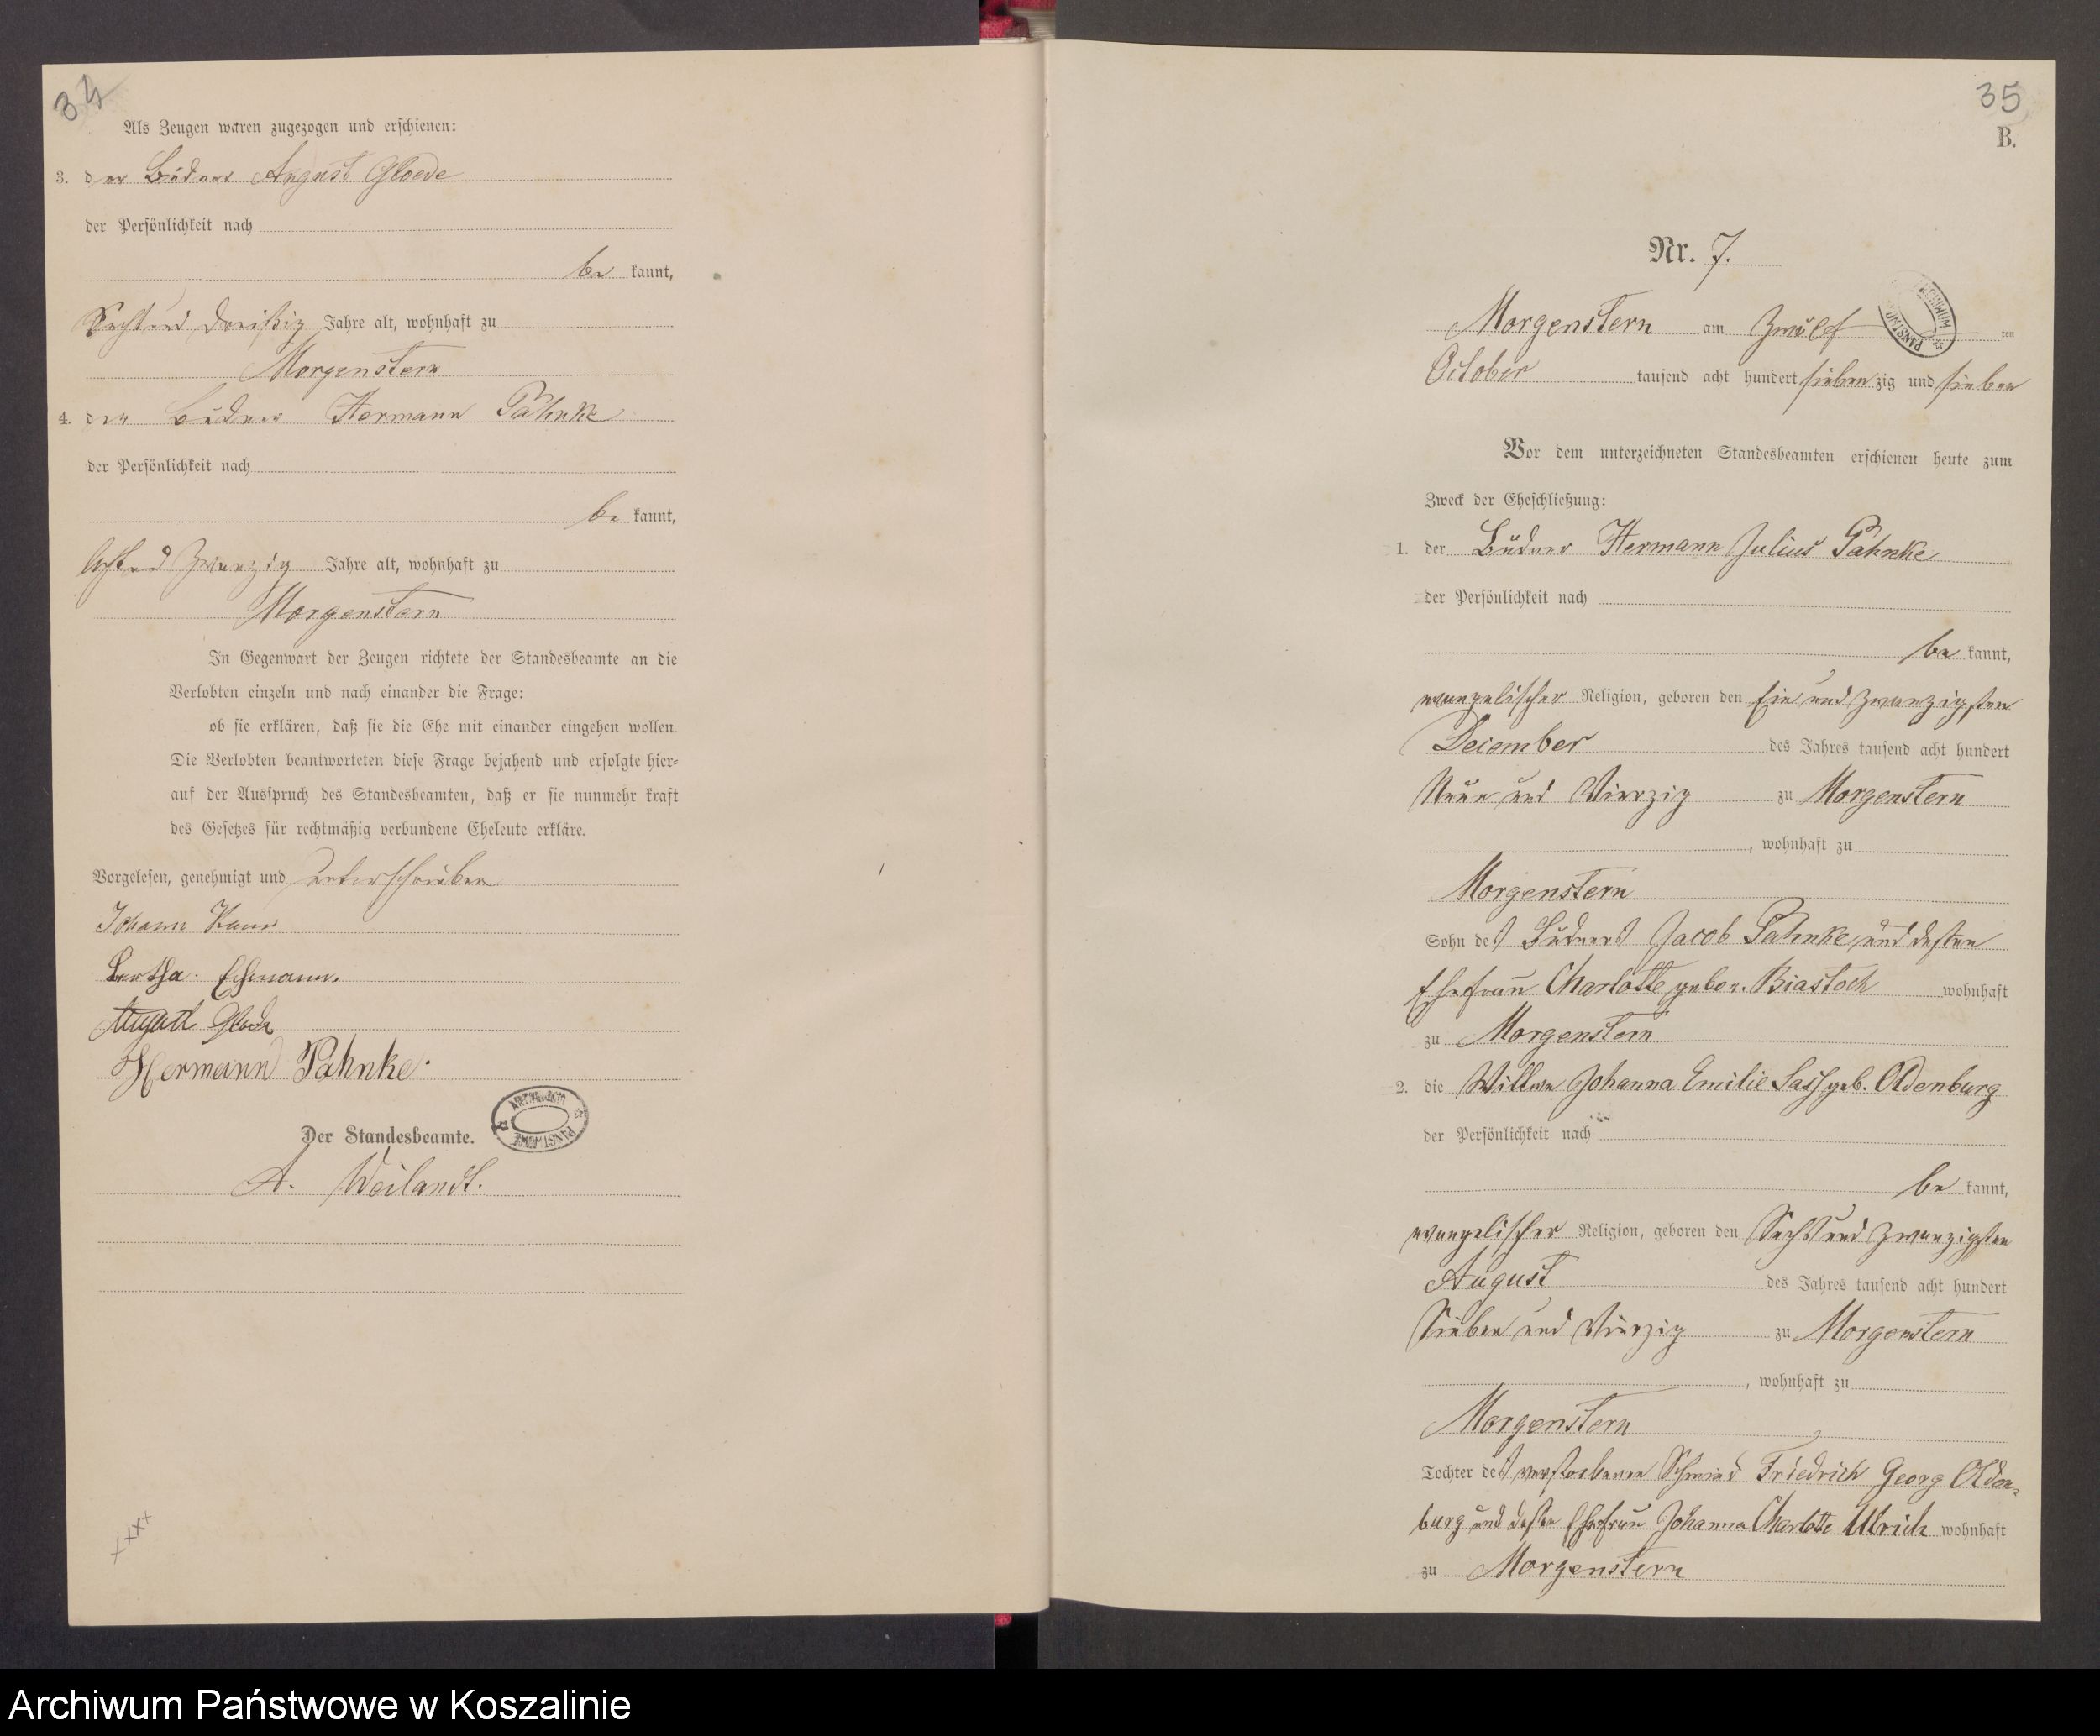 34
Als Zeugen waren zugezogen und erschienen:
3. der Büdner August Gloede
der Persönlichkeit nach
be kannt,
Sechs und dreißig Jahre alt, wohnhaft zu
Morgenstern
4. der Büdner Hermann Pahnke
der Persönlichkeit nach
be kannt,
Acht und Zwanzig Jahre alt, wohnhaft zu
Morgenstern
In Gegenwart der Zeugen richtete der Standesbeamte an die
Verlobten einzeln und nach einander die Frage:
ob sie erklären, daß sie die Ehe mit einander eingehen wollen.
Die Verlobten beantworteten diese Frage bejahend und erfolgte hier-
auf der Ausspruch des Standesbeamten, daß er sie nunmehr kraft
des Gesetzes für rechtmäßig verbundene Eheleute erkläre.
Vorgelesen, genehmigt und unterschrieben
Johann
Bertha
August Gloede
Hermann Pahnke.
Der Standesbeamte.
A. Weilandt.
xxxx
35
B.
Nr. 7.
Morgenstern am Zwölf ten
October tausend acht hundert sieben zig und sieben
Vor dem unterzeichneten Standesbeamten erschienen heute zum
Zweck der Eheschließung:
1. der Büdner Hermann Julius Pahnke
der Persönlichkeit nach
be kannt,
evangelischer Religion, geboren den Ein und zwanzigsten
December des Jahres tausend acht hundert
Neun und Vierzig zu Morgenstern
, wohnhaft zu
Morgenstern
Sohn des Büdners Jacob Pahnke und dessen
Ehefrau Charlotte gebor. Biastoch wohnhaft
zu Morgenstern
2. die Wittwe Johanna Emilie Sass geb. Oldenburg
der Persönlichkeit nach
be kannt,
evangelischer Religion, geboren den Sechs und zwanzigsten
August des Jahres tausend acht hundert
Sieben und Vierzig zu Morgenstern
, wohnhaft zu
Morgenstern
Tochter des verstorbenen Schmied Friedrich Georg Olden-
burg und dessen Ehefrau Johanna Charlotte Ulrich wohnhaft
zu Morgenstern
Archiwum Państwowe w Koszalinie